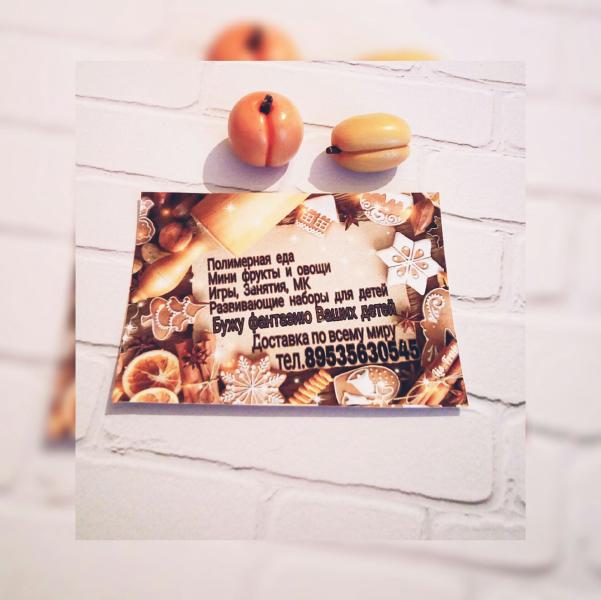 Полимерная еда
Мини фрукты и овощи
Игры, Занятия, МК
Развивающие наборы для детей
Бужу фантазию Ваших детей
Доставка по всему миру
тел.89535630545